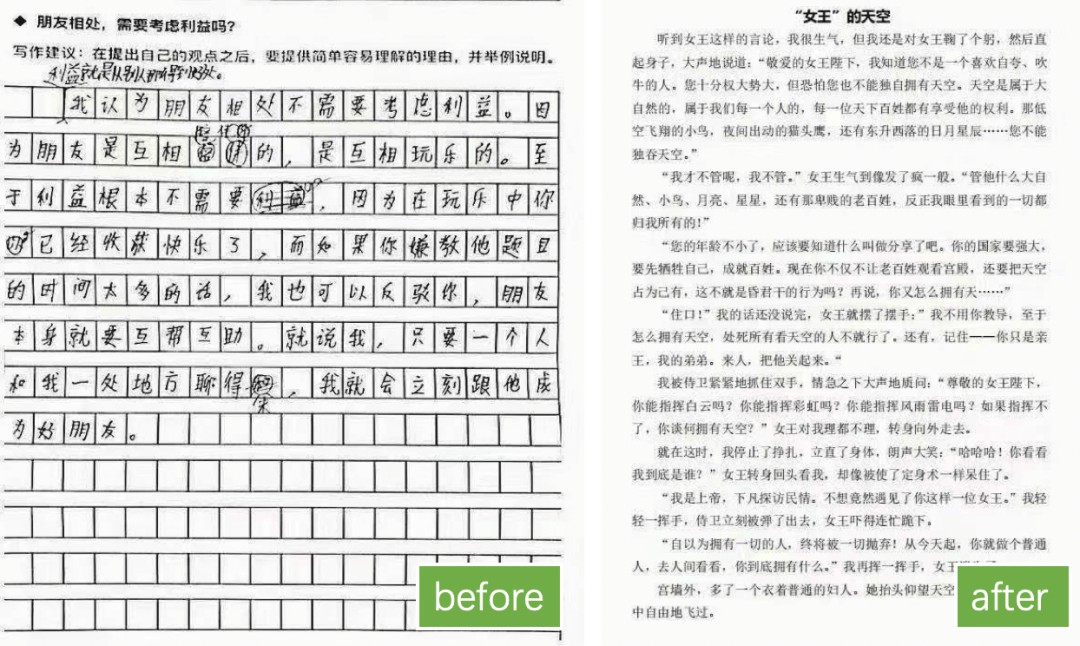 ◆ 朋友相处，需要考虑利益吗？
写作建议：在提出自己的观点之后，要提供简单容易理解的理由，并举例说明。
利益就是从别人那得到好处。
我认为朋友相处不需要考虑利益。因
为朋友是互相陪伴的，是互相玩乐的。至
于利益根本不需要，因为在玩乐中你
已经收获快乐了，而如果你嫌教他题目
的时间太多的话，我也可以反驳你，朋友
本身就要互帮互助。就说我，只要一个人
和我一处地方聊得来，我就会立刻跟他成
为好朋友。
before
“女王”的天空
听到女王这样的言论，我很生气，但我还是对女王鞠了个躬，然后直
起身子，大声地说道：“敬爱的女王陛下，我知道您不是一个喜欢自夸、吹
牛的人。您十分权大势大，但恐怕您也不能独自拥有天空。天空是属于大
自然的，属于我们每一个人的，每一位天下百姓都有享受他的权利。那低
空飞翔的小鸟，夜间出动的猫头鹰，还有东升西落的日月星辰……您不能
独吞天空。”
“我才不管呢，我不管。”女王生气到像发了疯一般。“管他什么大自
然、小鸟、月亮、星星，还有那卑贱的老百姓，反正我眼里看到的一切都
归我所有的！”
“您的年龄不小了，应该要知道什么叫做分享了吧。你的国家要强大，
要先牺牲自己，成就百姓。现在你不仅不让老百姓观看宫殿，还要把天空
占为己有，这不就是昏君干的行为吗？再说，你又怎么拥有天……”
“住口！”我的话还没说完，女王就摆了摆手：”我不用你教导，至于
怎么拥有天空，处死所有看天空的人不就行了。还有，记住——你只是亲
王，我的弟弟。来人，把他关起来。“
我被侍卫紧紧地抓住双手，情急之下大声地质问：“尊敬的女王陛下，
你能指挥白云吗？你能指挥彩虹吗？你能指挥风雨雷电吗？如果指挥不
了，你谈何拥有天空？”女王对我理都不理，转身向外走去。
就在这时，我停止了挣扎，立直了身体，朗声大笑：“哈哈哈！你看看
我到底是谁？”女王转身回头看我，却像被使了定身术一样呆住了。
“我是上帝，下凡探访民情。不想竟然遇见了你这样一位女王。”我轻
轻一挥手，侍卫立刻被弹了出去，女王吓得连忙跪下。
“自以为拥有一切的人，终将被一切抛弃！从今天起，你就做个普通
人，去人间看看，你到底拥有什么。”我再挥一挥手，女王
宫墙外，多了一个衣着普通的妇人。她抬头仰望天空
中自由地飞过。
after